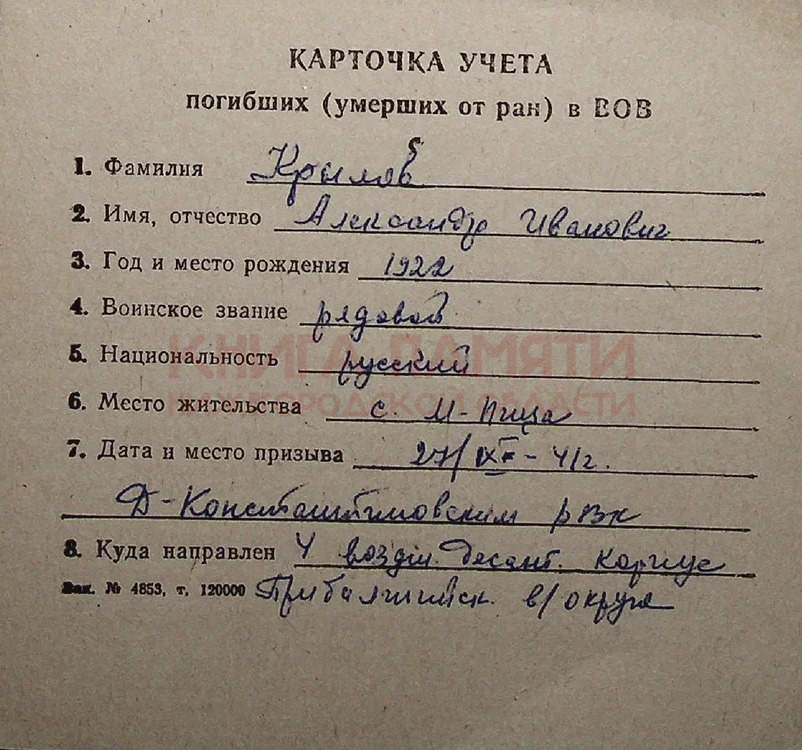 КАРТОЧКА УЧЕТА
погибших (умерших от ран) в ВОВ
1. Фамилия Крылов
2. Имя, отчество Александр Иванович
3. Год и место рождения 1922
4. Воинское звание рядовой
КНИГА ПАМЯТИ
5. Национальность русский
НИЖЕГОРОДСКОЙ ОБЛАСТИ
6. Место жительства с. М-Пица
7. Дата и место призыва 27/IX - 41г.
Д-Константиновским рвк
8. Куда направлен 4 воздш. десант. корпус
Зак. № 4853, т. 120000 Прибалтийск. в/округа